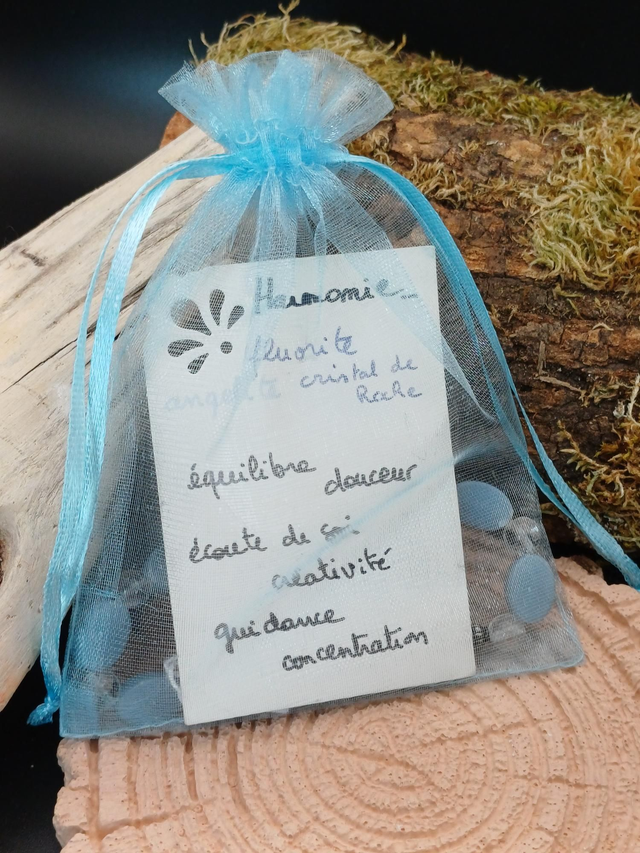 Harmonie
fluorite
angelite cristal de
Roche
équilibre
douceur
écoute de soi
créativité
guidance
concentration